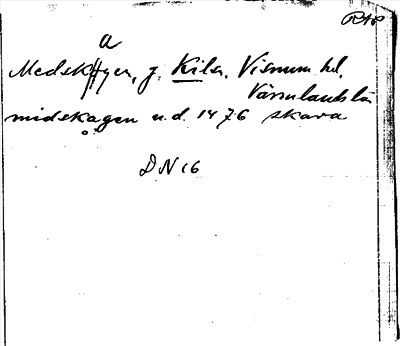 a
Medskagen, g. Kila, Visnum hd,
Värmlands län
midskagen u.d. 1476 skara
DN 16